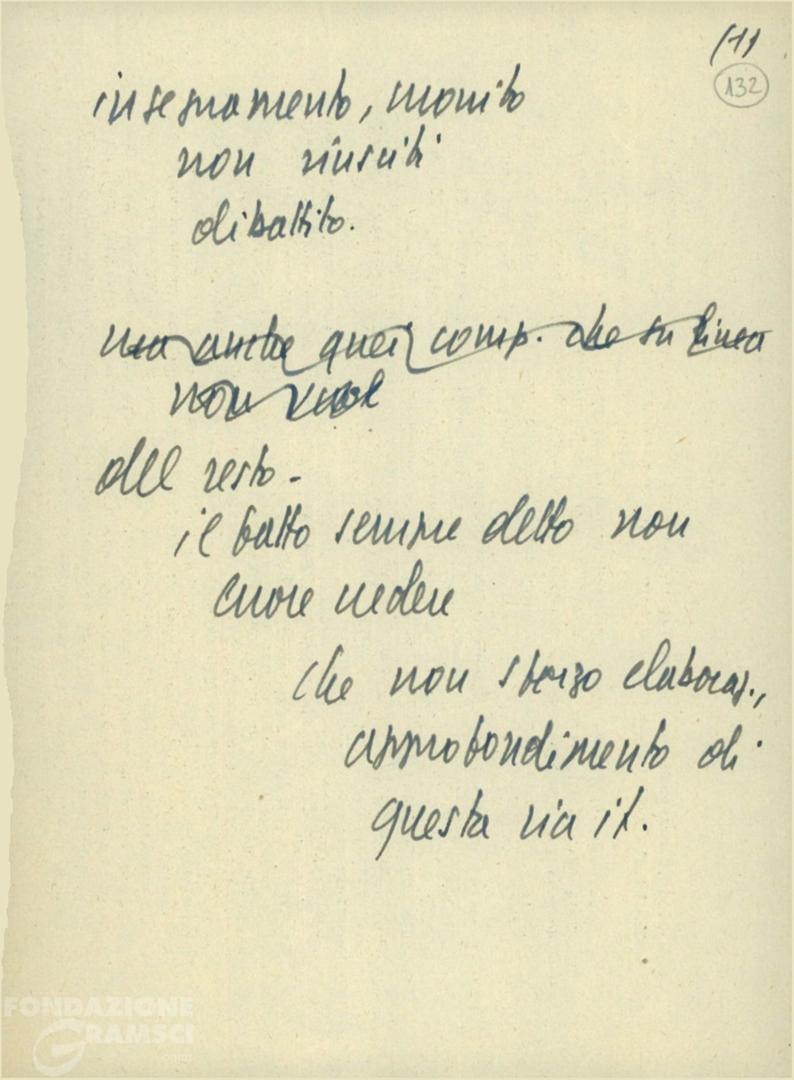 (11
132
insegnamento, monito
non riusciti
dibattito.
ma anche quei comp. che su linea
non
del resto -
il fatto sempre detto non
vedere
che non sforzo elaboraz.,
approfondimento di
questa via it.
FONDAZIONE
GRAMSCI